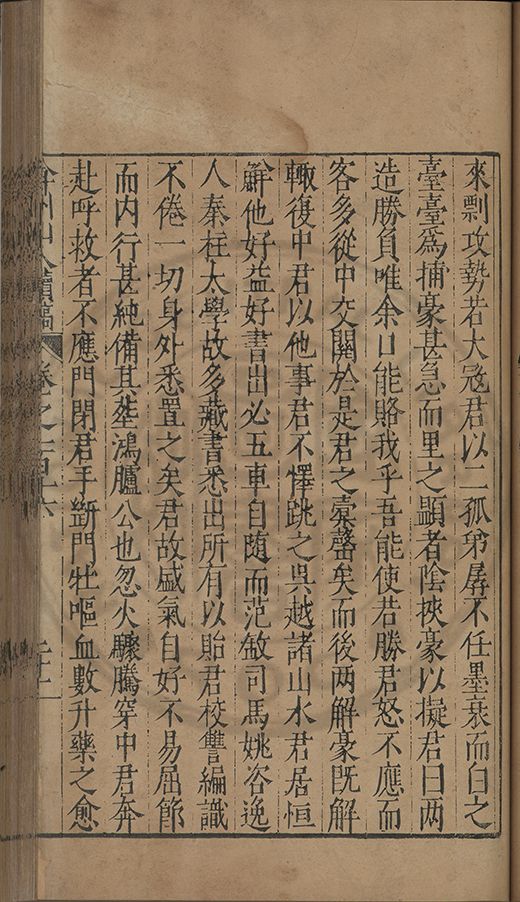 來剽攻勢若大冦君以二孤弟孱不任墨衰而白之
臺臺爲捕豪甚急而里之顯者陰挾豪以擬君曰两
造勝負唯余口能賂我乎吾能使若勝君怒不應而
客多從中交關於是君之橐罄矣而後两解豪既解
輙復中君以他事君不懌跳之吳越諸山水君居恒
鮮他好益好書出必五車自随而范敏司馬姚咨逸
人秦柱太學故多藏書悉出所有以貽君校讐編識
不倦一切身外悉置之矣君故盛氣自好不易屈節
而内行甚純備其塟鴻臚公也忽火驟騰穿中君奔
赴呼救者不應門閉君手斷門牡嘔血數升藥之愈
弇州山人續稿 卷之一百十六 二十二